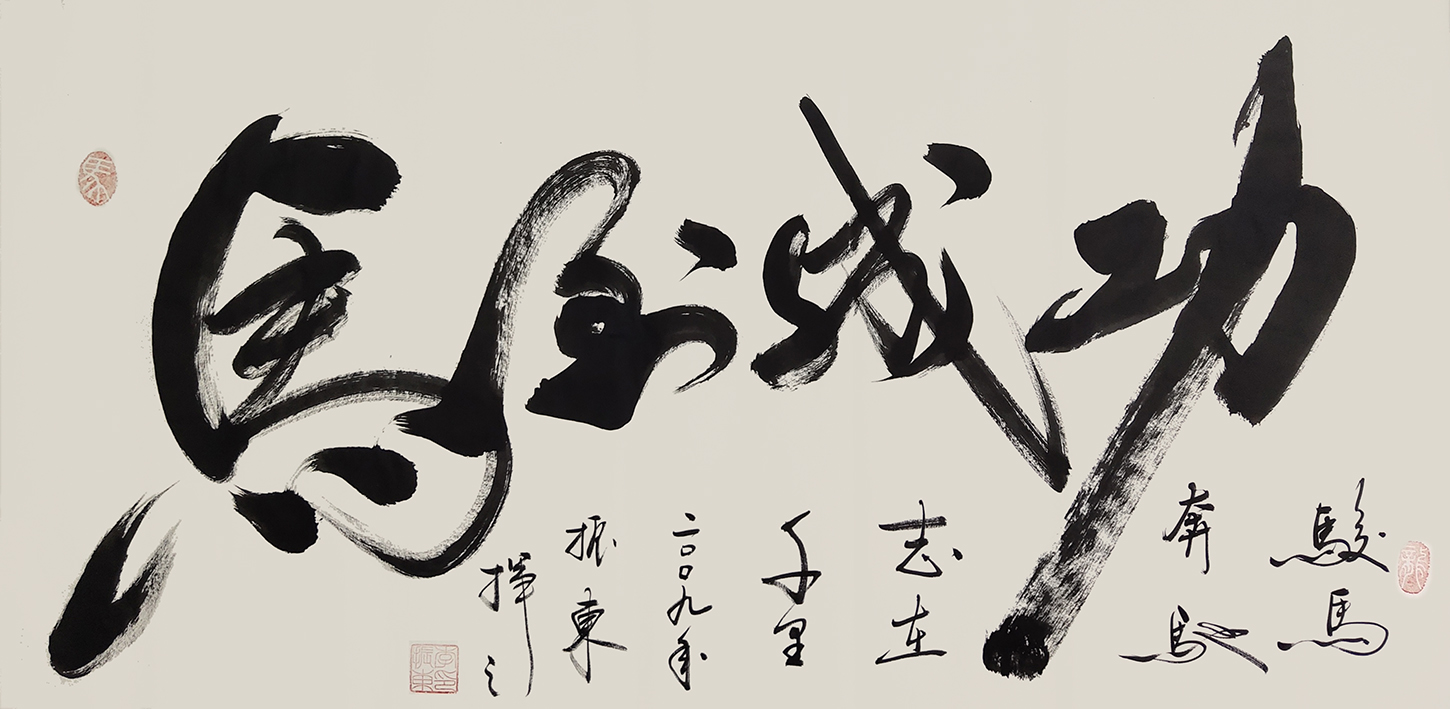 馬到成功
駿馬
奔馳
志在
千里
二〇〇九年
振東
揮之